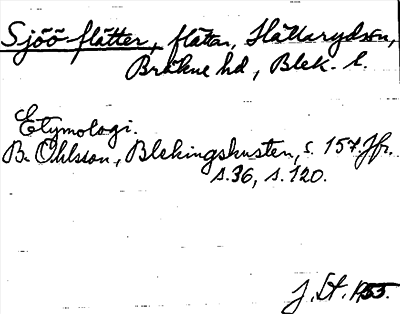 Sjöö-flätter, flättar, Hällarydssn,
Bräkne hd, Blek. l.
Etymologi.
B. Ohlsson, Blekingskusten, s. 157. Jfr.
s.36, s.120.
J. St. 1955.